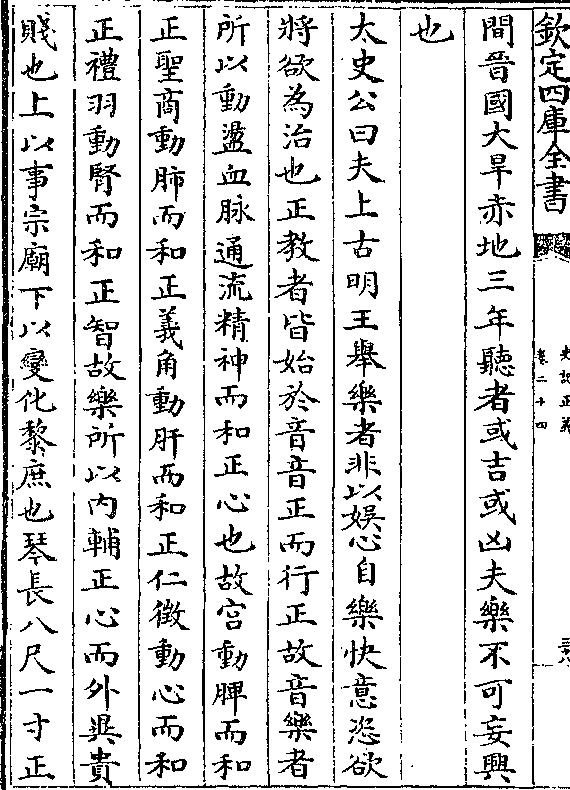 欽定四庫全書
史記正義
卷二十四
間晉國大旱赤地三年聽者或吉或凶夫樂不可妄興
也
太史公曰夫上古明王舉樂者非以娛心自樂快意恣欲
將欲為治也正教者皆始於音音正而行正故音樂者
所以動盪血脉通流精神而和正心也故宫動脾而和
正聖商動肺而和正義角動肝而和正仁徵動心而和
正禮羽動腎而和正智故樂所以内輔正心而外異貴
賤也上以事宗廟下以變化黎庶也琴長八尺一寸正